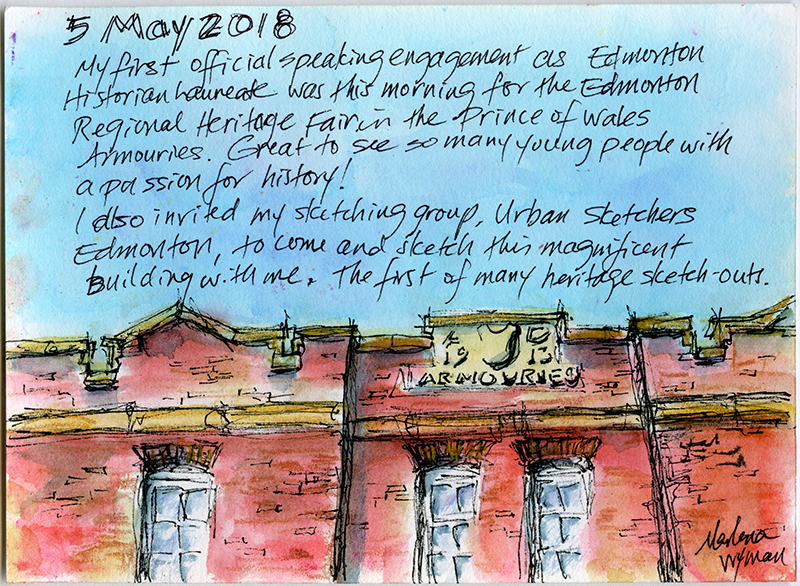 5 May 2018
My first official speaking engagement as Edmonton
Historian Laureate was this morning for the Edmonton
Regional Heritage Fair in the Prince of Wales
Armouries. Great to see so many young people with
a passion for history!
I also invited my sketching group, Urban Sketchers
Edmonton, to come and sketch this magnificent
building with me. The first of many heritage sketch-outs.
A D
19 13
ARMOURIES
Marlena
Wyman